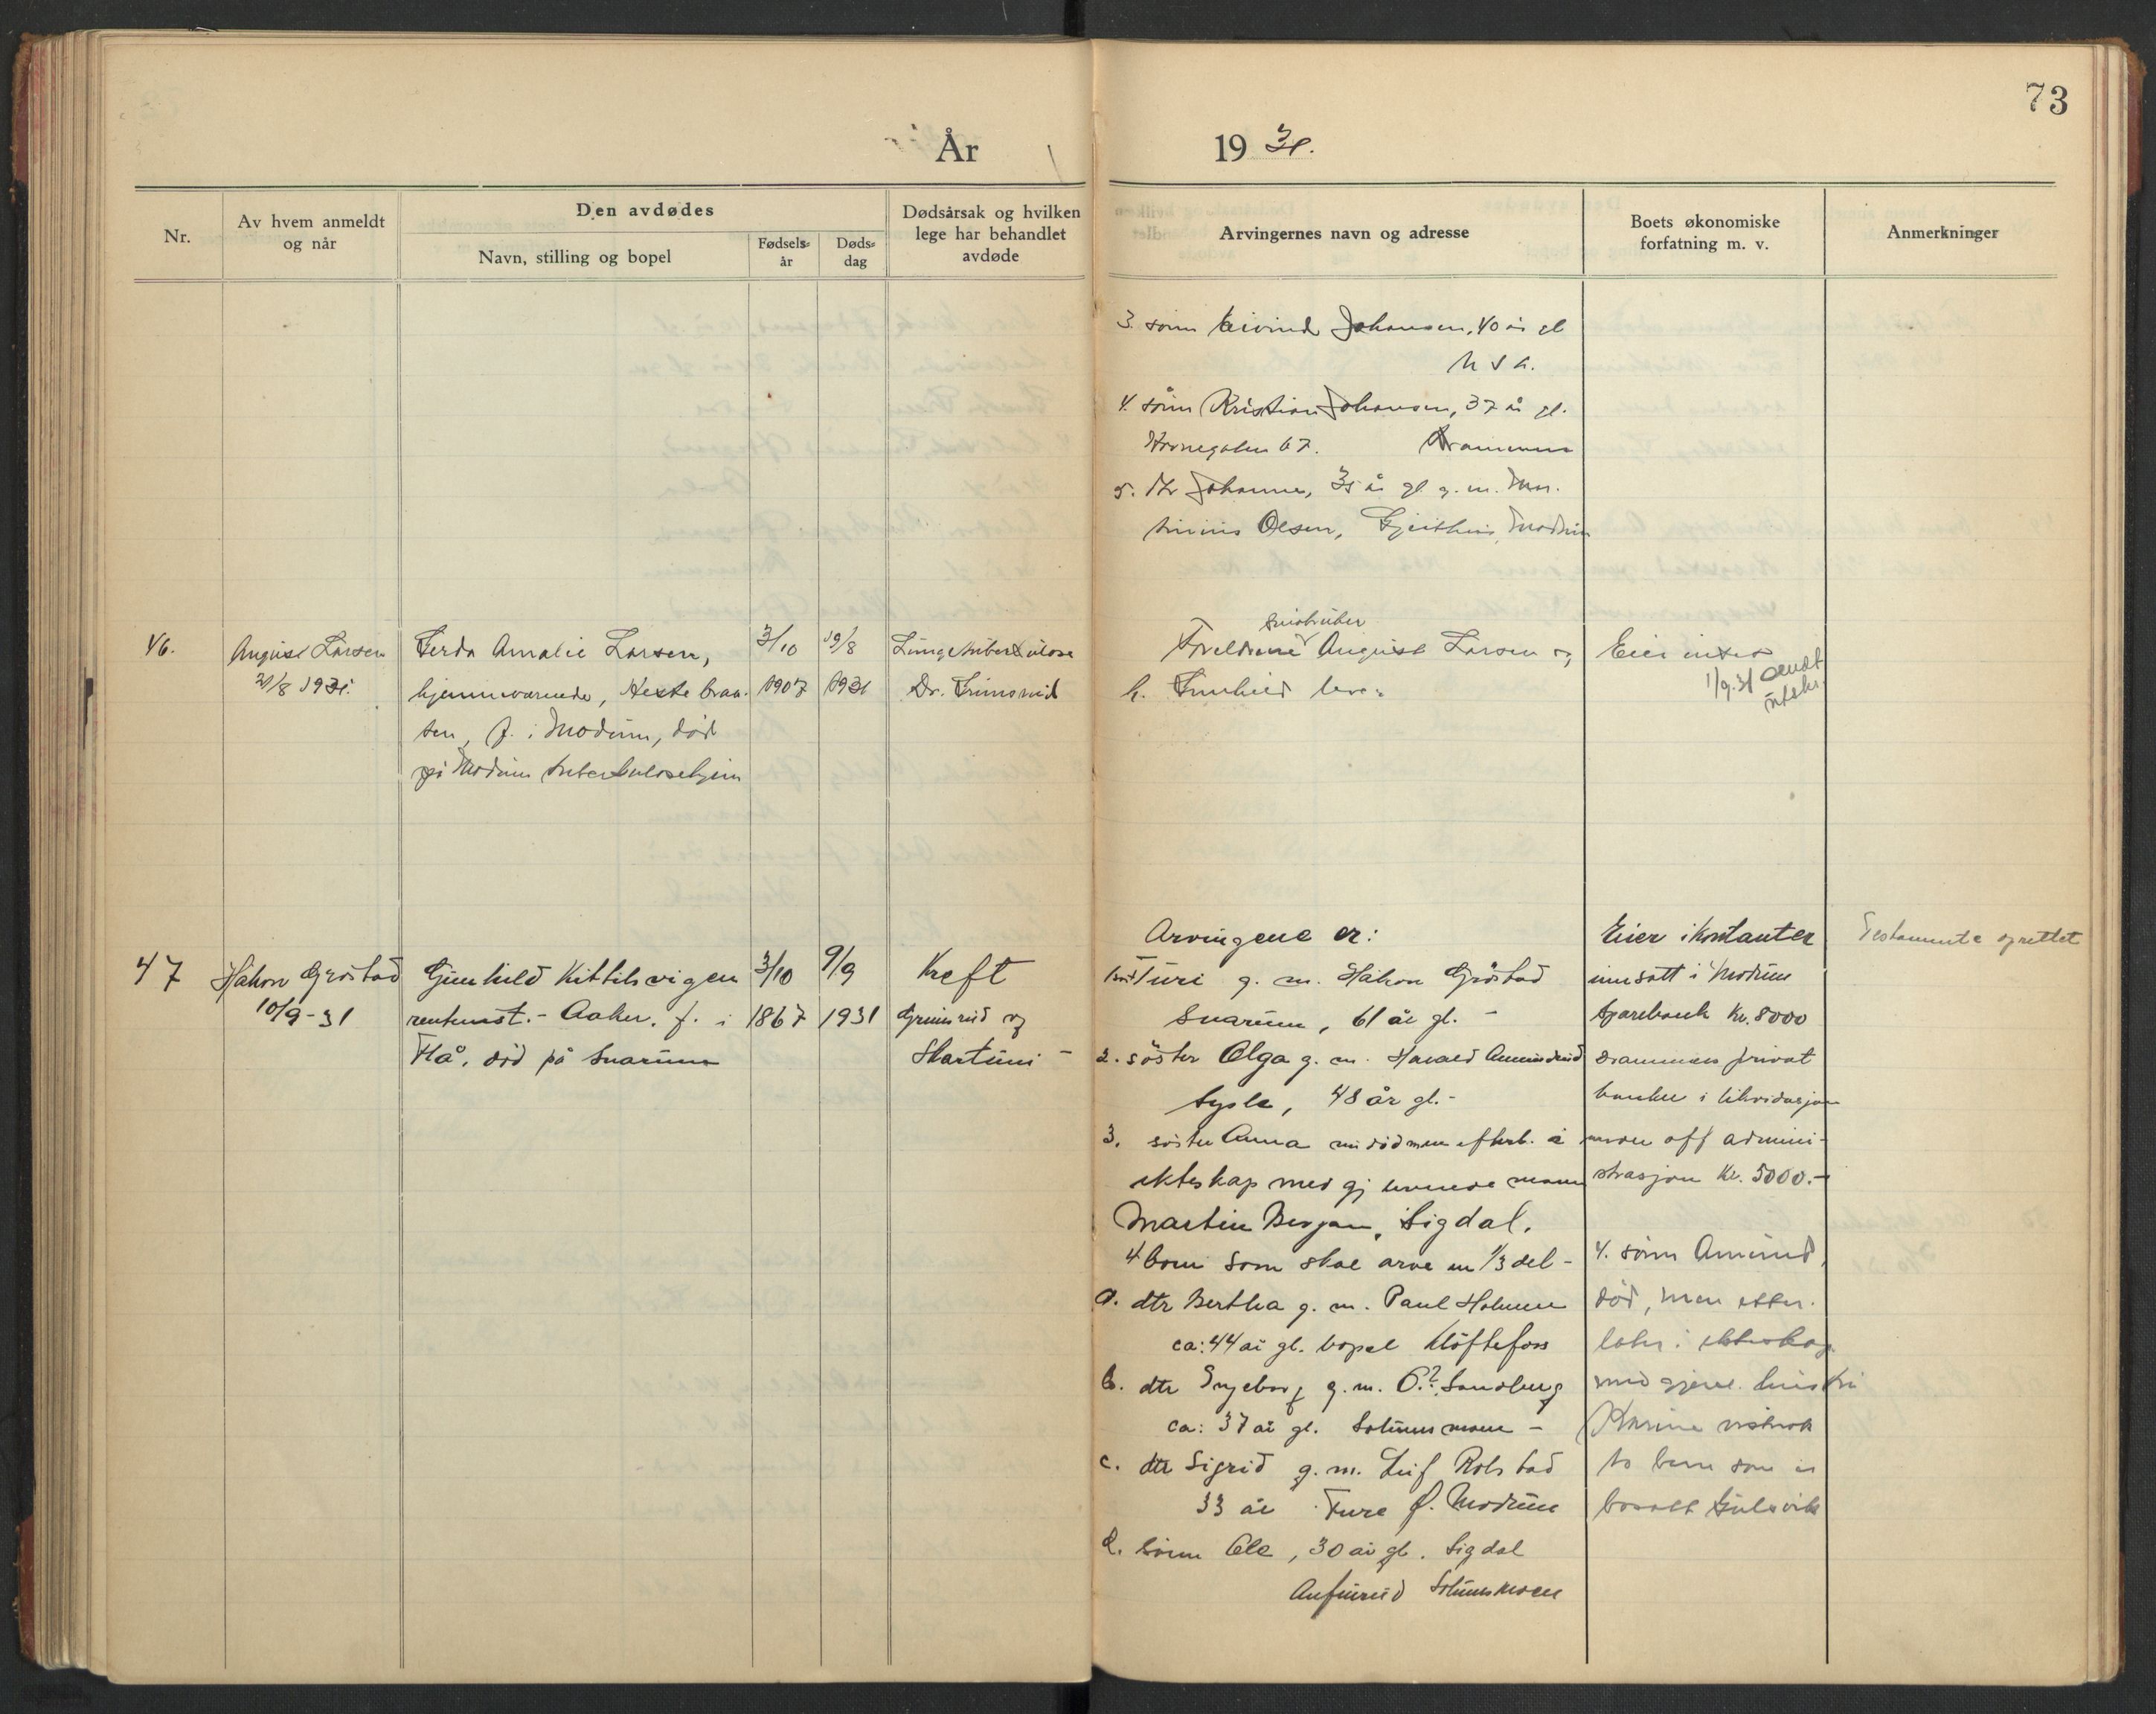 73
År 1931.
Nr.
Av hvem anmeldt og når
Den avdødes
Navn, stilling og bopel
Fødsels-år
Døds-dag
Dødsårsak og hvilken lege har behandlet avdøde
Arvingernes navn og adresse
Boets økonomiske forfatning m. v.
Anmerkninger
3. sønn Eivind Johansen, 40 år gl
U S A.
4. sønn Kristian Johansen, 37 år gl.
67. Drammen
5. dtr Johanne, 35 år gl. g. m. Mar-
tinius Olsen, Gjeithus, Modum
46.
August Larsen
21/8 1931.
Gerda Amalie Larsen,
hjemmeværende, Heste braa-
ten, f. i Modum, död
på Modum tuberkulosehjem
3/10
1907
19/8
1931
Lungetuberkulose
Dr. Grimsrud
småbruker
Foreldrene August Larsen og
h. Gunhild
Eier intet
1/9.31 sendt
utskr.
47
Håkon Gröstad
10/9-31
Gunhild Kittilsvigen
rentenist.- Aaker. f. i
Flå, död på Snarum
3/10
1867
9/9
1931
Kreft
Grimsrud og
Skartum -
Arvingene er:
Turi g. m. Håkon Gröstad
Snarum, 61 år gl. -
2. söster Olga g. m. Harald Amundrud
Sysle, 48 år gl.-
3. söster Anna nu död men efterl. i
ekteskap med gj levende mann
Martin Bergan, Sigdal.
4 barn som skal arve en 1/3 del -
a. dtr Bertha g. m. Paul Holmen
ca: 44 år gl. bopel Klöftefoss
b. dtr Ingeborg g. m. O.? Sandberg
ca: 37 år gl. Solumsmoen -
c. dtr Sigrid g. m. Leif Rolstad
33 år Fure Ø. Modum
d. sönn Ole, 30 år gl. Sigdal
Anfinrud Solumsmoen
Eier i kontanter
innsatt i Modum
Sparebank Kr. 8000
Drammens privat
banken i likvidasjon
under off admini-
strasjon Kr. 5000.-
4. sönn Amund,
död, men etter-
later i ekteskap
med gjenl. hustru
Karine
to barn som er
bosatt Gulsvik
Testamente oprettet